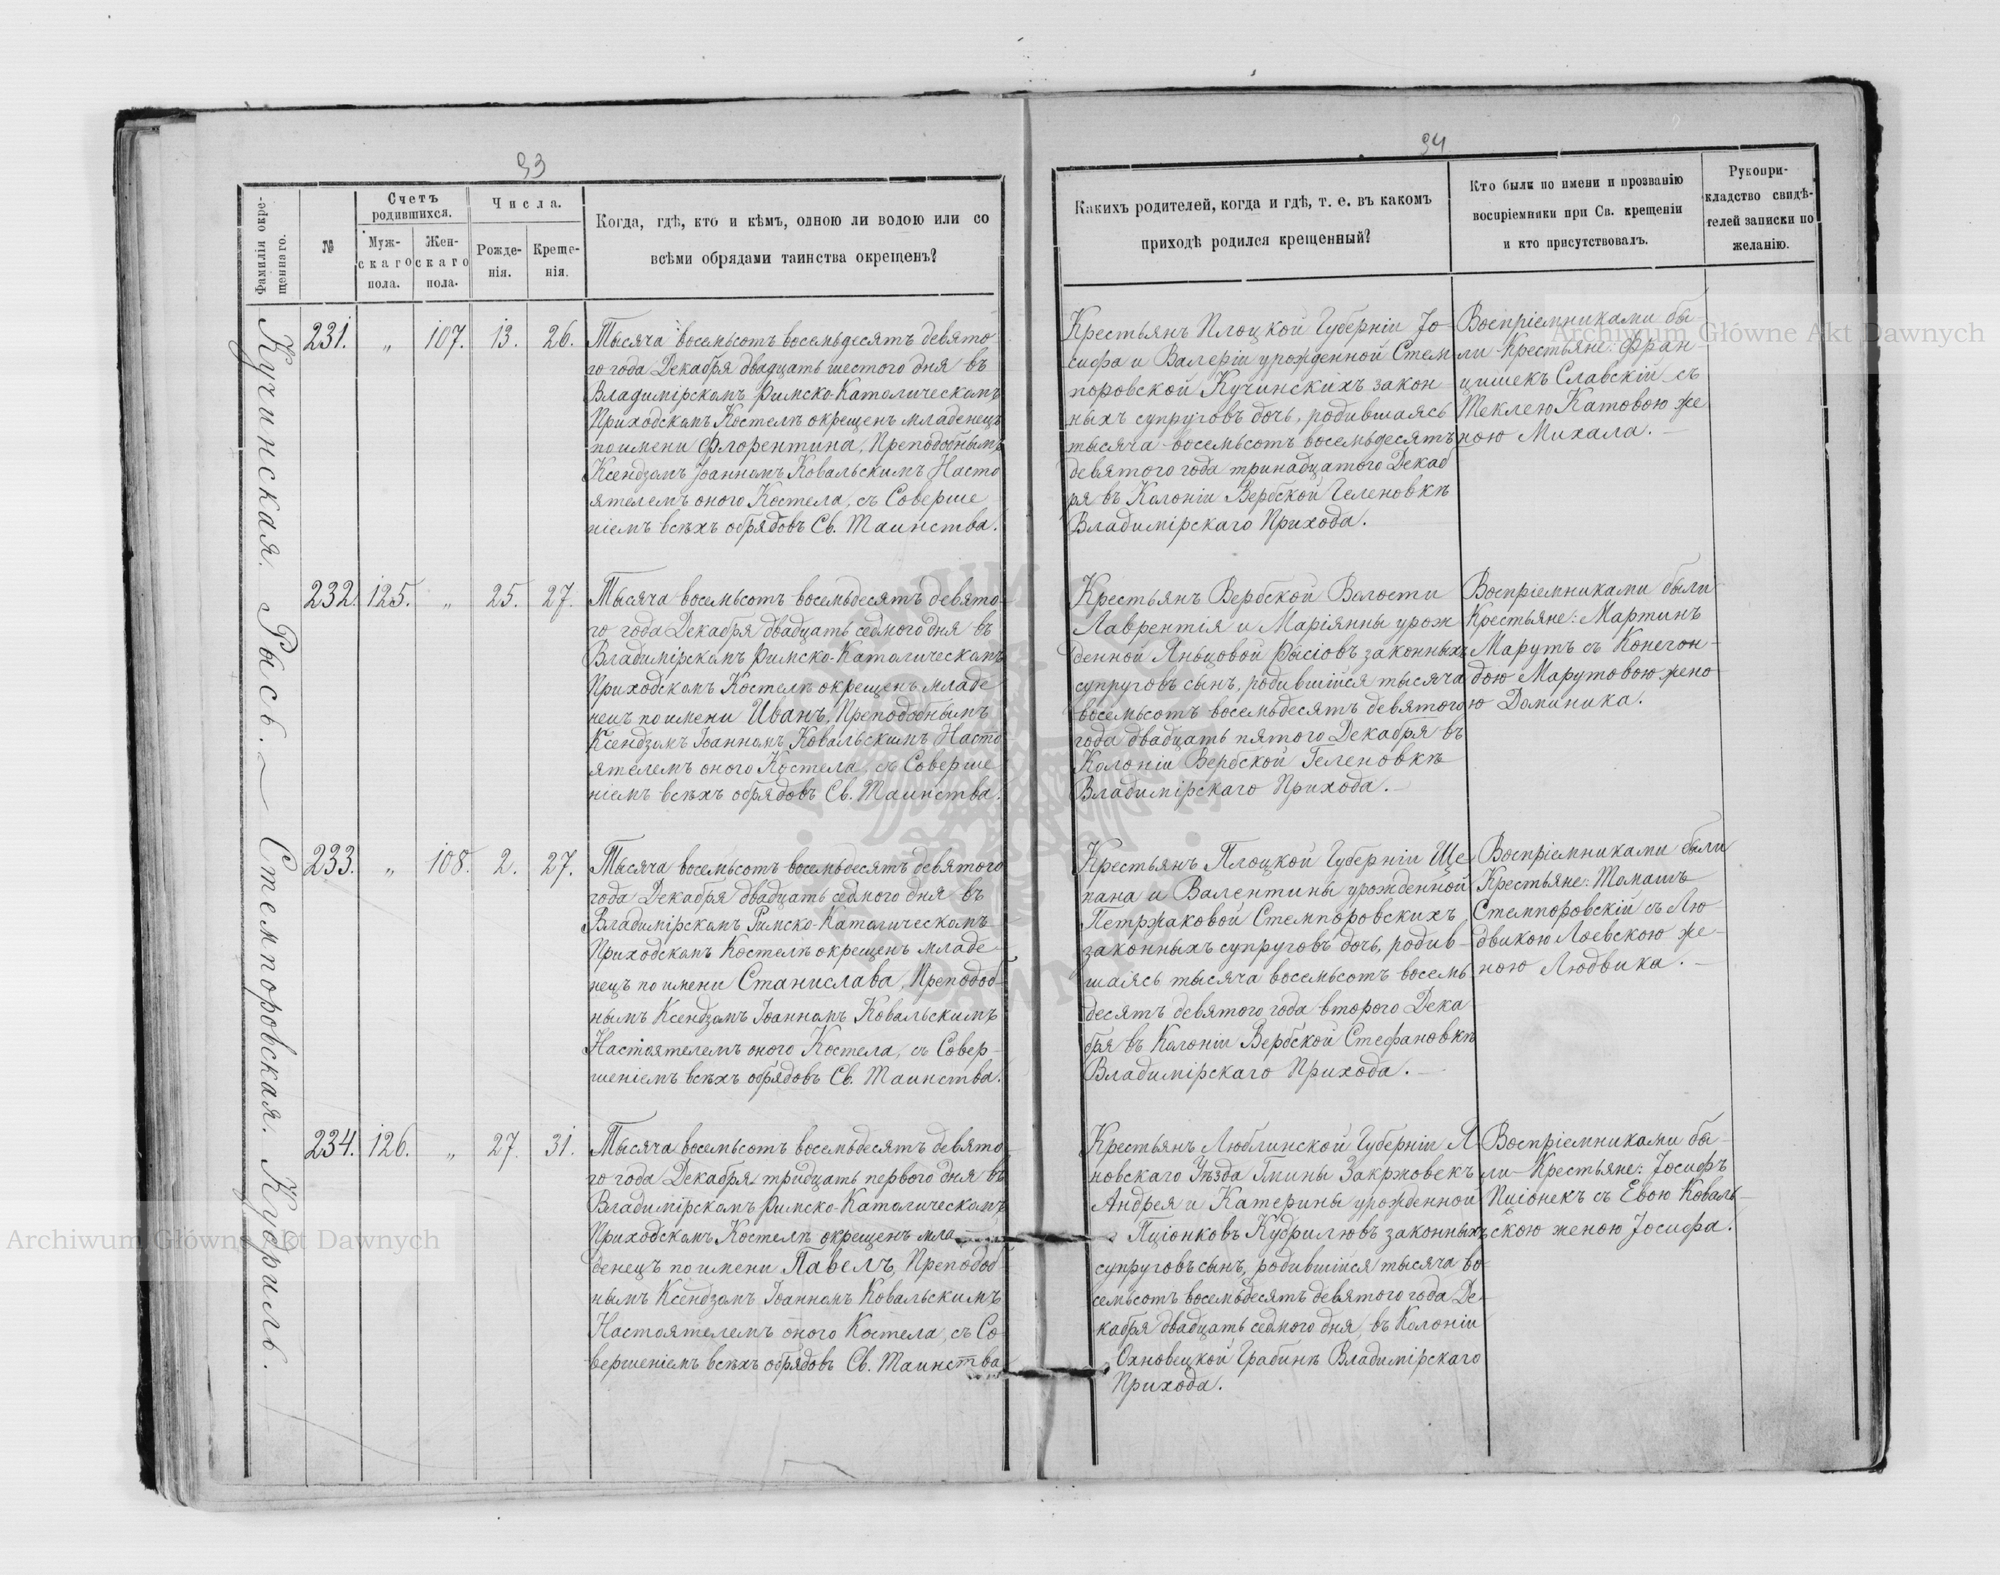 93
94
Фамилія окре-
щеннаго.
№
Счетъ
родившихся.
Муж-
скаго
пола.
Жен-
скаго
пола.
Числа.
Рожде-
нія.
Креще-
нія.
Когда, гдѣ, кто и кѣмъ, одною ли водою или со
всѣми обрядами таинства окрещенъ?
Какихъ родителей, когда и гдѣ, т. е. въ какомъ
приходѣ родился крещенный?
Кто были по имени и прозванію
воспріемники при Св. крещеніи
и кто присутствовалъ.
Рукопри-
кладство свидѣ-
телей записки по
желанію.
Кучинская.
231.
„
107.
13.
26.
Тысяча восемьсотъ восемьдесятъ девято
го года Декабря двадцать шестого дня въ
Владимірскомъ Римско-Католическомъ
Приходскомъ Костелѣ окрещенъ младенецъ
по имени Флорентина, Преподобнымъ
Ксендзомъ Іоанномъ Ковальскимъ Насто
ятелемъ оного Костела, съ Соверше
ніемъ всѣхъ обрядовъ Св. Таинства.
Крестьянъ Плоцкой Губерніи Іо-
сифа и Валеріи урожденной Стем
поровской Кучинскихъ закон
ныхъ супруговъ дочь, родившаясь
тысяча восемьсотъ восемьдесятъ
девятого года тринадцатого Декаб
ря въ Колоніи Вербской Геленовкѣ
Владимірскаго Прихода.
Воспріемниками бы-
ли Крестьяне: Фран-
цишекъ Славскій съ
Теклею Катовою же
ною Михала.
Рысь.
232.
125.
„
25.
27.
Тысяча восемьсотъ восемьдесятъ девято-
го года Декабря двадцать седмого дня въ
Владимірскомъ Римско-Католическомъ
Приходскомъ Костелѣ окрещенъ младе
нецъ по имени Иванъ, Преподобнымъ
Ксендзомъ Іоанномъ Ковальскимъ Насто
ятелемъ оного Костела, съ Соверше
ніемъ всѣхъ обрядовъ Св. Таинства.
Крестьянъ Вербской Волости
Лаврентія и Маріянны урож
денной Яньцовой Рысіовъ законныхъ
супруговъ сынъ, родившійся тысяча
восемьсотъ восемьдесятъ девятого
года двадцать пятого Декабря въ
Колоніи Вербской Геленовкѣ
Владимірскаго Прихода.
Воспріемниками были
Крестьяне: Мартинъ
Марутъ съ Конегон-
дою Марутовою жено
ю Доминика.
Стемпоровская.
233.
„
108.
2.
27.
Тысяча восемьсотъ восемьдесятъ девятого
года Декабря двадцать седмого дня въ
Владимірскомъ Римско-Католическомъ
Приходскомъ Костелѣ окрещенъ младе
нецъ по имени Станислава, Преподоб-
нымъ Ксендзомъ Іоанномъ Ковальскимъ
Настоятелемъ оного Костела, съ Совер-
шеніемъ всѣхъ обрядовъ Св. Таинства.
Крестьянъ Плоцкой Губерніи Ще
пана и Валентины урожденной
Петржаковой Стемпоровскихъ
законныхъ супруговъ дочь, родив-
шаясь тысяча восемьсотъ восемь
десятъ девятого года второго Дека
бря въ Колоніи Вербской Стефановкѣ
Владимірскаго Прихода.
Воспріемниками были
Крестьяне: Томашъ
Стемпоровскій съ Лю
двикою Лоевскою же-
ною Людвика.
Кудриль.
234.
126.
„
27.
31.
Тысяча восемьсотъ восемьдесятъ девято
го года Декабря тридцать первого дня въ
Владимірскомъ Римско-Католическомъ
Приходскомъ Костелѣ окрещенъ мла
денецъ по имени Павелъ, Преподоб
нымъ Ксендзомъ Іоанномъ Ковальскимъ
Настоятелемъ оного Костела, съ Со
вершеніемъ всѣхъ обрядовъ Св. Таинства
Крестьянъ Люблинской Губерніи Я
новскаго Уѣзда Гмины Закржовекъ
Андрея и Катерины урожденной
Пціонковъ Кудрилювъ законныхъ
супруговъ сынъ, родившійся тысяча во
семьсотъ восемьдесятъ девятого года Де-
кабря двадцать седмого дня, въ Колоніи
Охновецкой Грабинѣ Владимірскаго
Прихода.
Воспріемниками бы-
ли Крестьяне: Іосифъ
Пціонекъ съ Евою Коваль-
скою женою Іосифа.
Archiwum Główne Akt Dawnych
Archiwum Główne Akt Dawnych